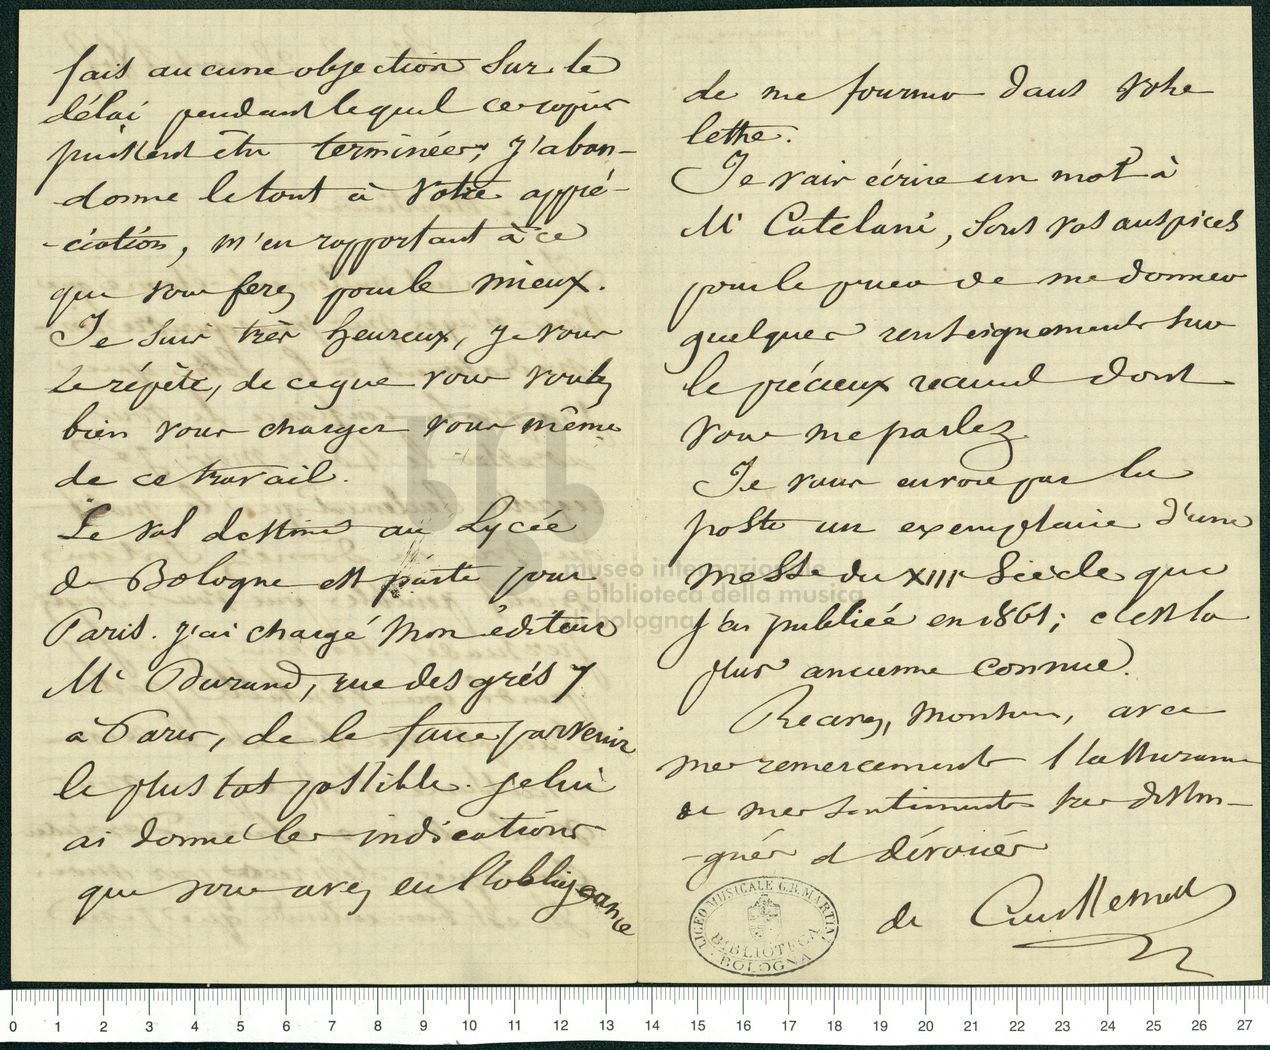 fais aucune objection sur le
délai pendant lequel ces copies
puissent être terminées; j'aban-
donne le tout à votre appré-
-ciation, m'en rapportant à ce
que vous ferez pour le mieux.
Je suis très heureux, je vous
le répète, de ce que vous voulez
bien vous charger vous même
de ce travail.
Le vol destiné au Lycée
de Bologne est parti pour
Paris. J'ai chargé mon éditeur
Mr Durand, rue des grés 7
à Paris, de le faire parvenir
le plus tot possible. Je lui
ai donné les indications
que vous avez eu l'obligeance
de me fournir dans votre
lettre.
Je vais écrire un mot à
Mr Catelani, sous vos auspices
pour le prier de me donner
quelques renseignements sur
le précieux recueil dont
vous me parlez
Je vous envoie par la
poste un exemplaire d'une
messe du XIIIe siècle que
j'ai publiée en 1861; c'est la
plus ancienne connue.
Recevez, Monsieur, avec
mes remerciements l'assurance
de mes sentiments très distin-
-gués et dévoués
de Coussemaker
LICEO MUSICALE G.B. MARTINI
BIBLIOTECA
BOLOGNA
museo internazionale
e biblioteca della musica
di bologna
0 1 2 3 4 5 6 7 8 9 10 11 12 13 14 15 16 17 18 19 20 21 22 23 24 25 26 27